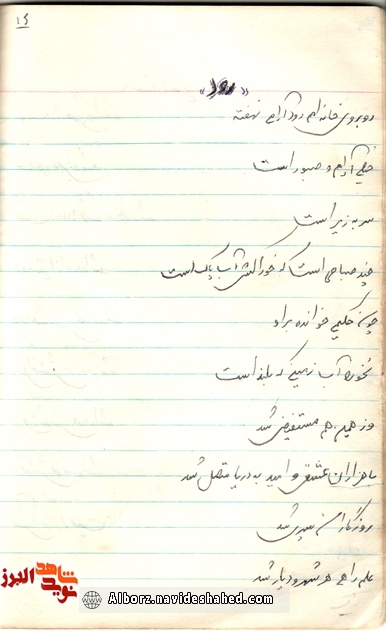 ۱۴
« رود »
روبروی خانه ام رود آرامی نهفته
خیلی آرام و صبور است
سر به زیر است
چند صباحی است که خوراکش آب پاک است
چون حکیمی خوانده بر او
نخورد آب زمینی که بلند است
وز همین هم مستفیض شد
با هزاران عشق و امید به دریا متصل شد
روزگاران سپری شد
علم راهی هر شهر و دیار شد
نوید شاهد البرز
Alborz.navideshahed.com